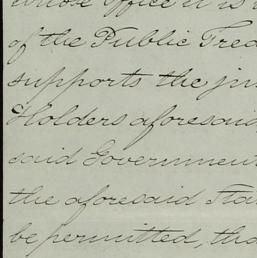 whose office it is
of the Public Trea
supports the ju
Holders aforesaid
said Government
the aforesaid Sta
be permitted, tha